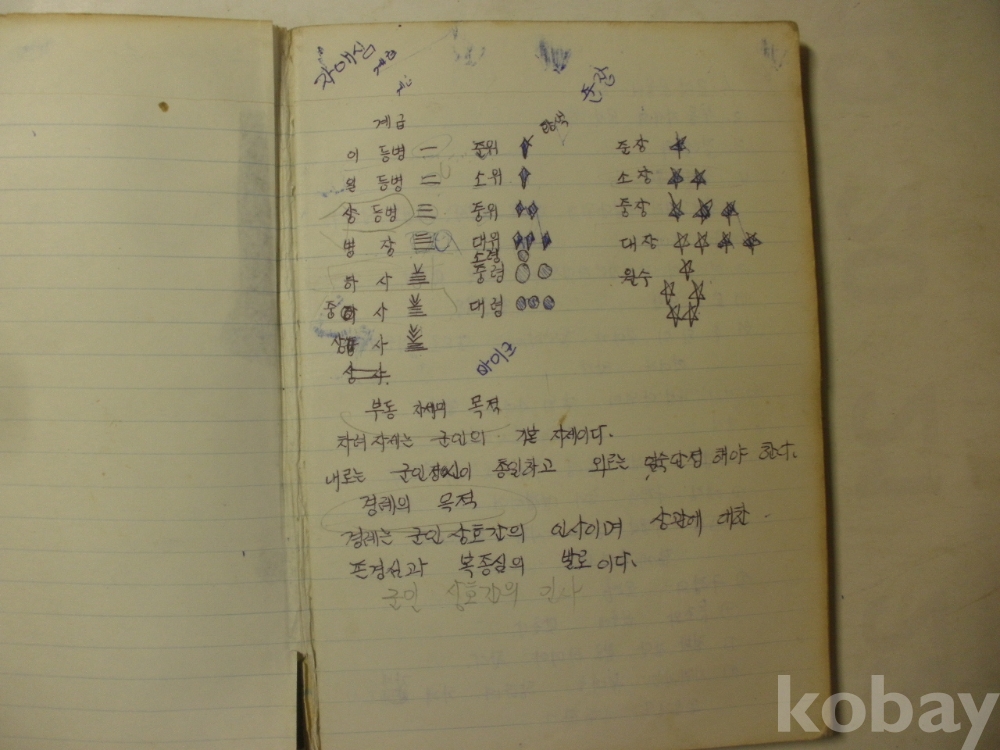 자애심
계급
이 등병 준위 준장
일 등병 소위 소장
상 등병 중위 중장
병 장 대위 대장
소령
하 사 중령 원수
중 사 대령
상 사
상 사
마이크
부동 자세의 목적
차려자세는 군인의 기본 자세이다.
내로는 군인정신이 충일하고 외로는 엄숙단정 해야 한다.
경례의 목적
경례는 군인 상호간의 인사이며 상관에 대한
존경심과 복종심의 발로이다.
군인 상호간의 인사
kobay